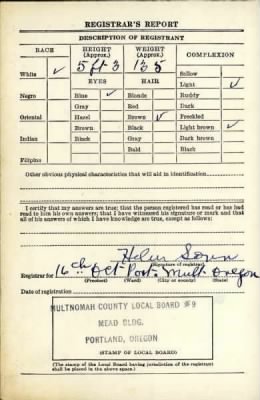 REGISTRAR'S REPORT
DESCRIPTION OF REGISTRANT
RACE HEIGHT (Approx.) WEIGHT (Approx.) COMPLEXION
White ✓ 5 ft 3 135 Sallow
EYES HAIR Light ✓
Negro Blue ✓ Blonde Ruddy
Gray Red Dark
Oriental Hazel Brown ✓ Freckled
Brown Black Light brown ✓
Indian Black Gray Dark brown
Bald Black
Filipino
Other obvious physical characteristics that will aid in identification
I certify that my answers are true; that the person registered has read or has had
read to him his own answers; that I have witnessed his signature or mark and that
all of his answers of which I have knowledge are true, except as follows:
Helen
(Signature of registrar)
Registrar for 16th Oct Port. Mult Oregon
(Precinct) (Ward) (City or county) (State)
Date of registration
MULTNOMAH COUNTY LOCAL BOARD #9
MEAD BLDG.
PORTLAND, OREGON
(STAMP OF LOCAL BOARD)
(The stamp of the Local Board having jurisdiction of the registrant
shall be placed in the above space.)